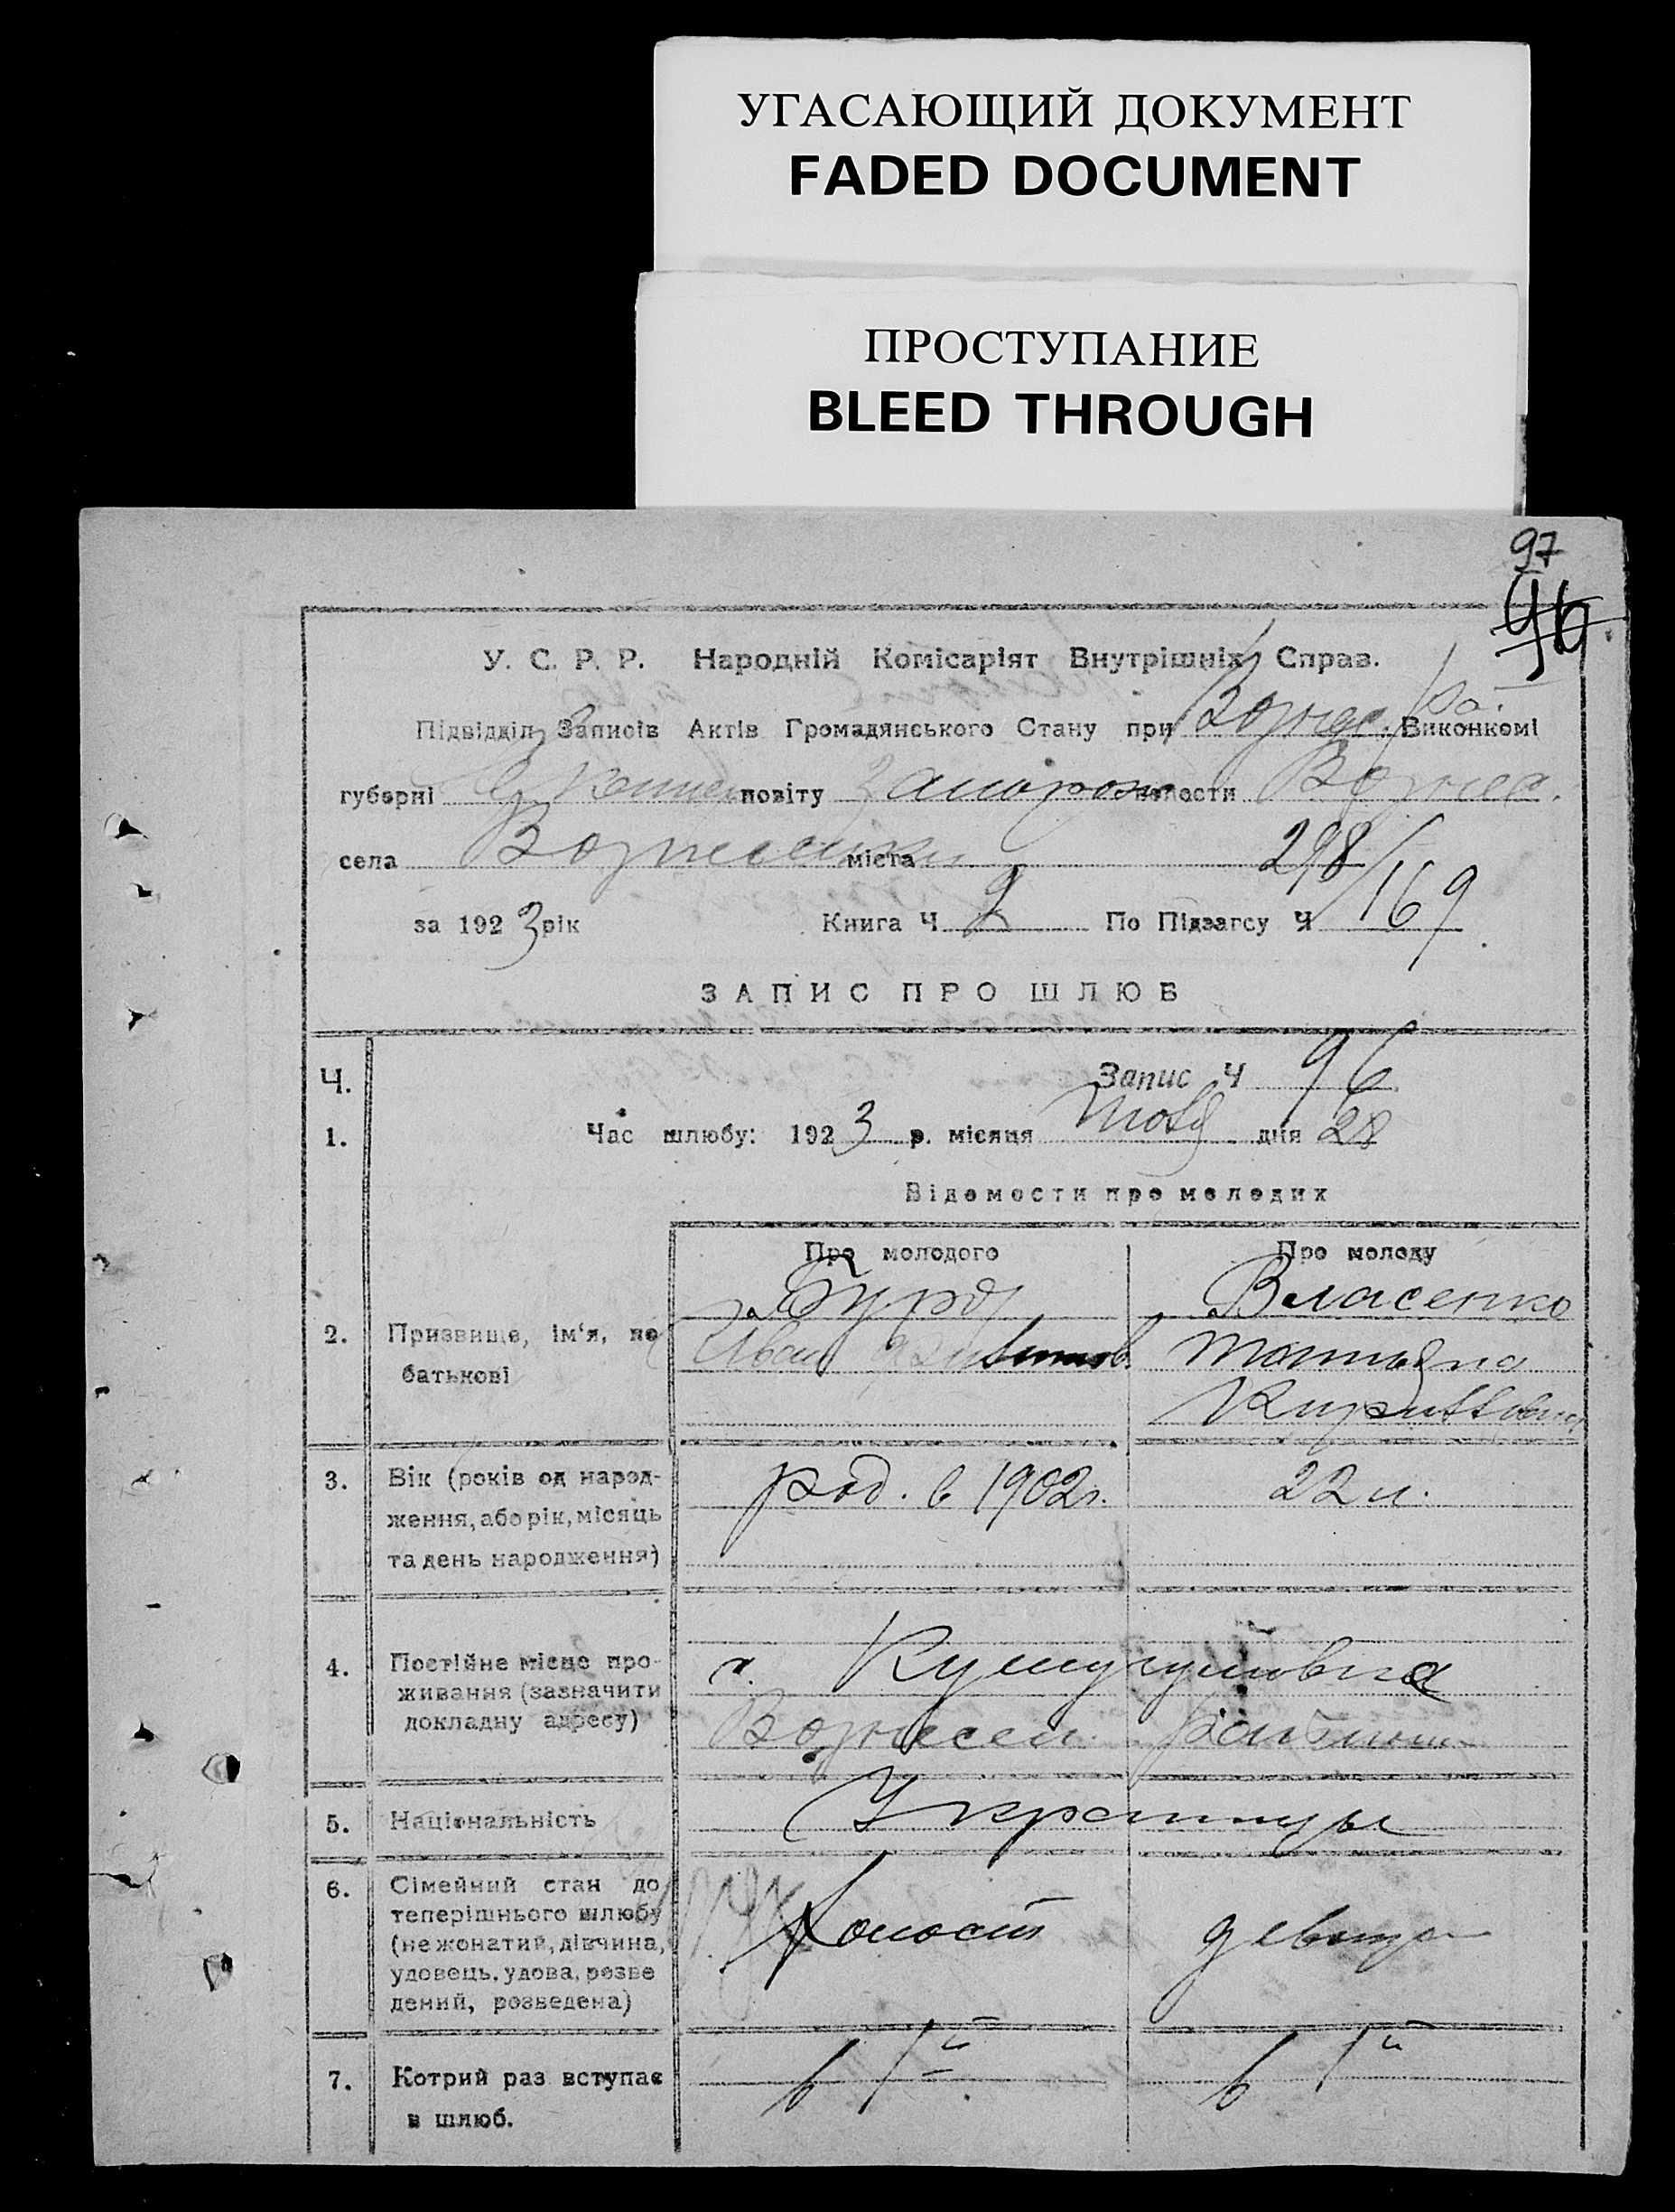 УГАСАЮЩИЙ ДОКУМЕНТ
FADED DOCUMENT
ПРОСТУПАНИЕ
BLEED THROUGH
97
96
У. С. Р. Р. Народній Комісаріят Внутрішніх Справ.
Підвідділ Записів Актів Громадянського Стану при Вознес. Виконкомі
губерні повіту Запорож волости Вознес.
села Вознесенки міста 298/
за 1923 рік Книга Ч 2 По Підзагсу Ч 169
ЗАПИС ПРО ШЛЮБ
Ч. Запис Ч 96
1. Час шлюбу: 1923 р. місяця дня 28
Відомости про молодих
Про молодого Про молоду
Власенко
2. Призвище, ім'я, по Иван Татьяна
батькові
3. Вік (років од народ- род. в 1902 г. 22 л.
ження, або рік, місяць
та день народження)
4. Постійне місце про- с. Кушугумовка
живання (зазначити Вознесен.
докладну адресу)
5. Національність Украинцы
6. Сімейний стан до
теперішнього шлюбу Холост девица
(не жонатий, дівчина,
удовець, удова, розве
дений, розведена)
7. Котрий раз вступає в 1й в 1й
в шлюб.